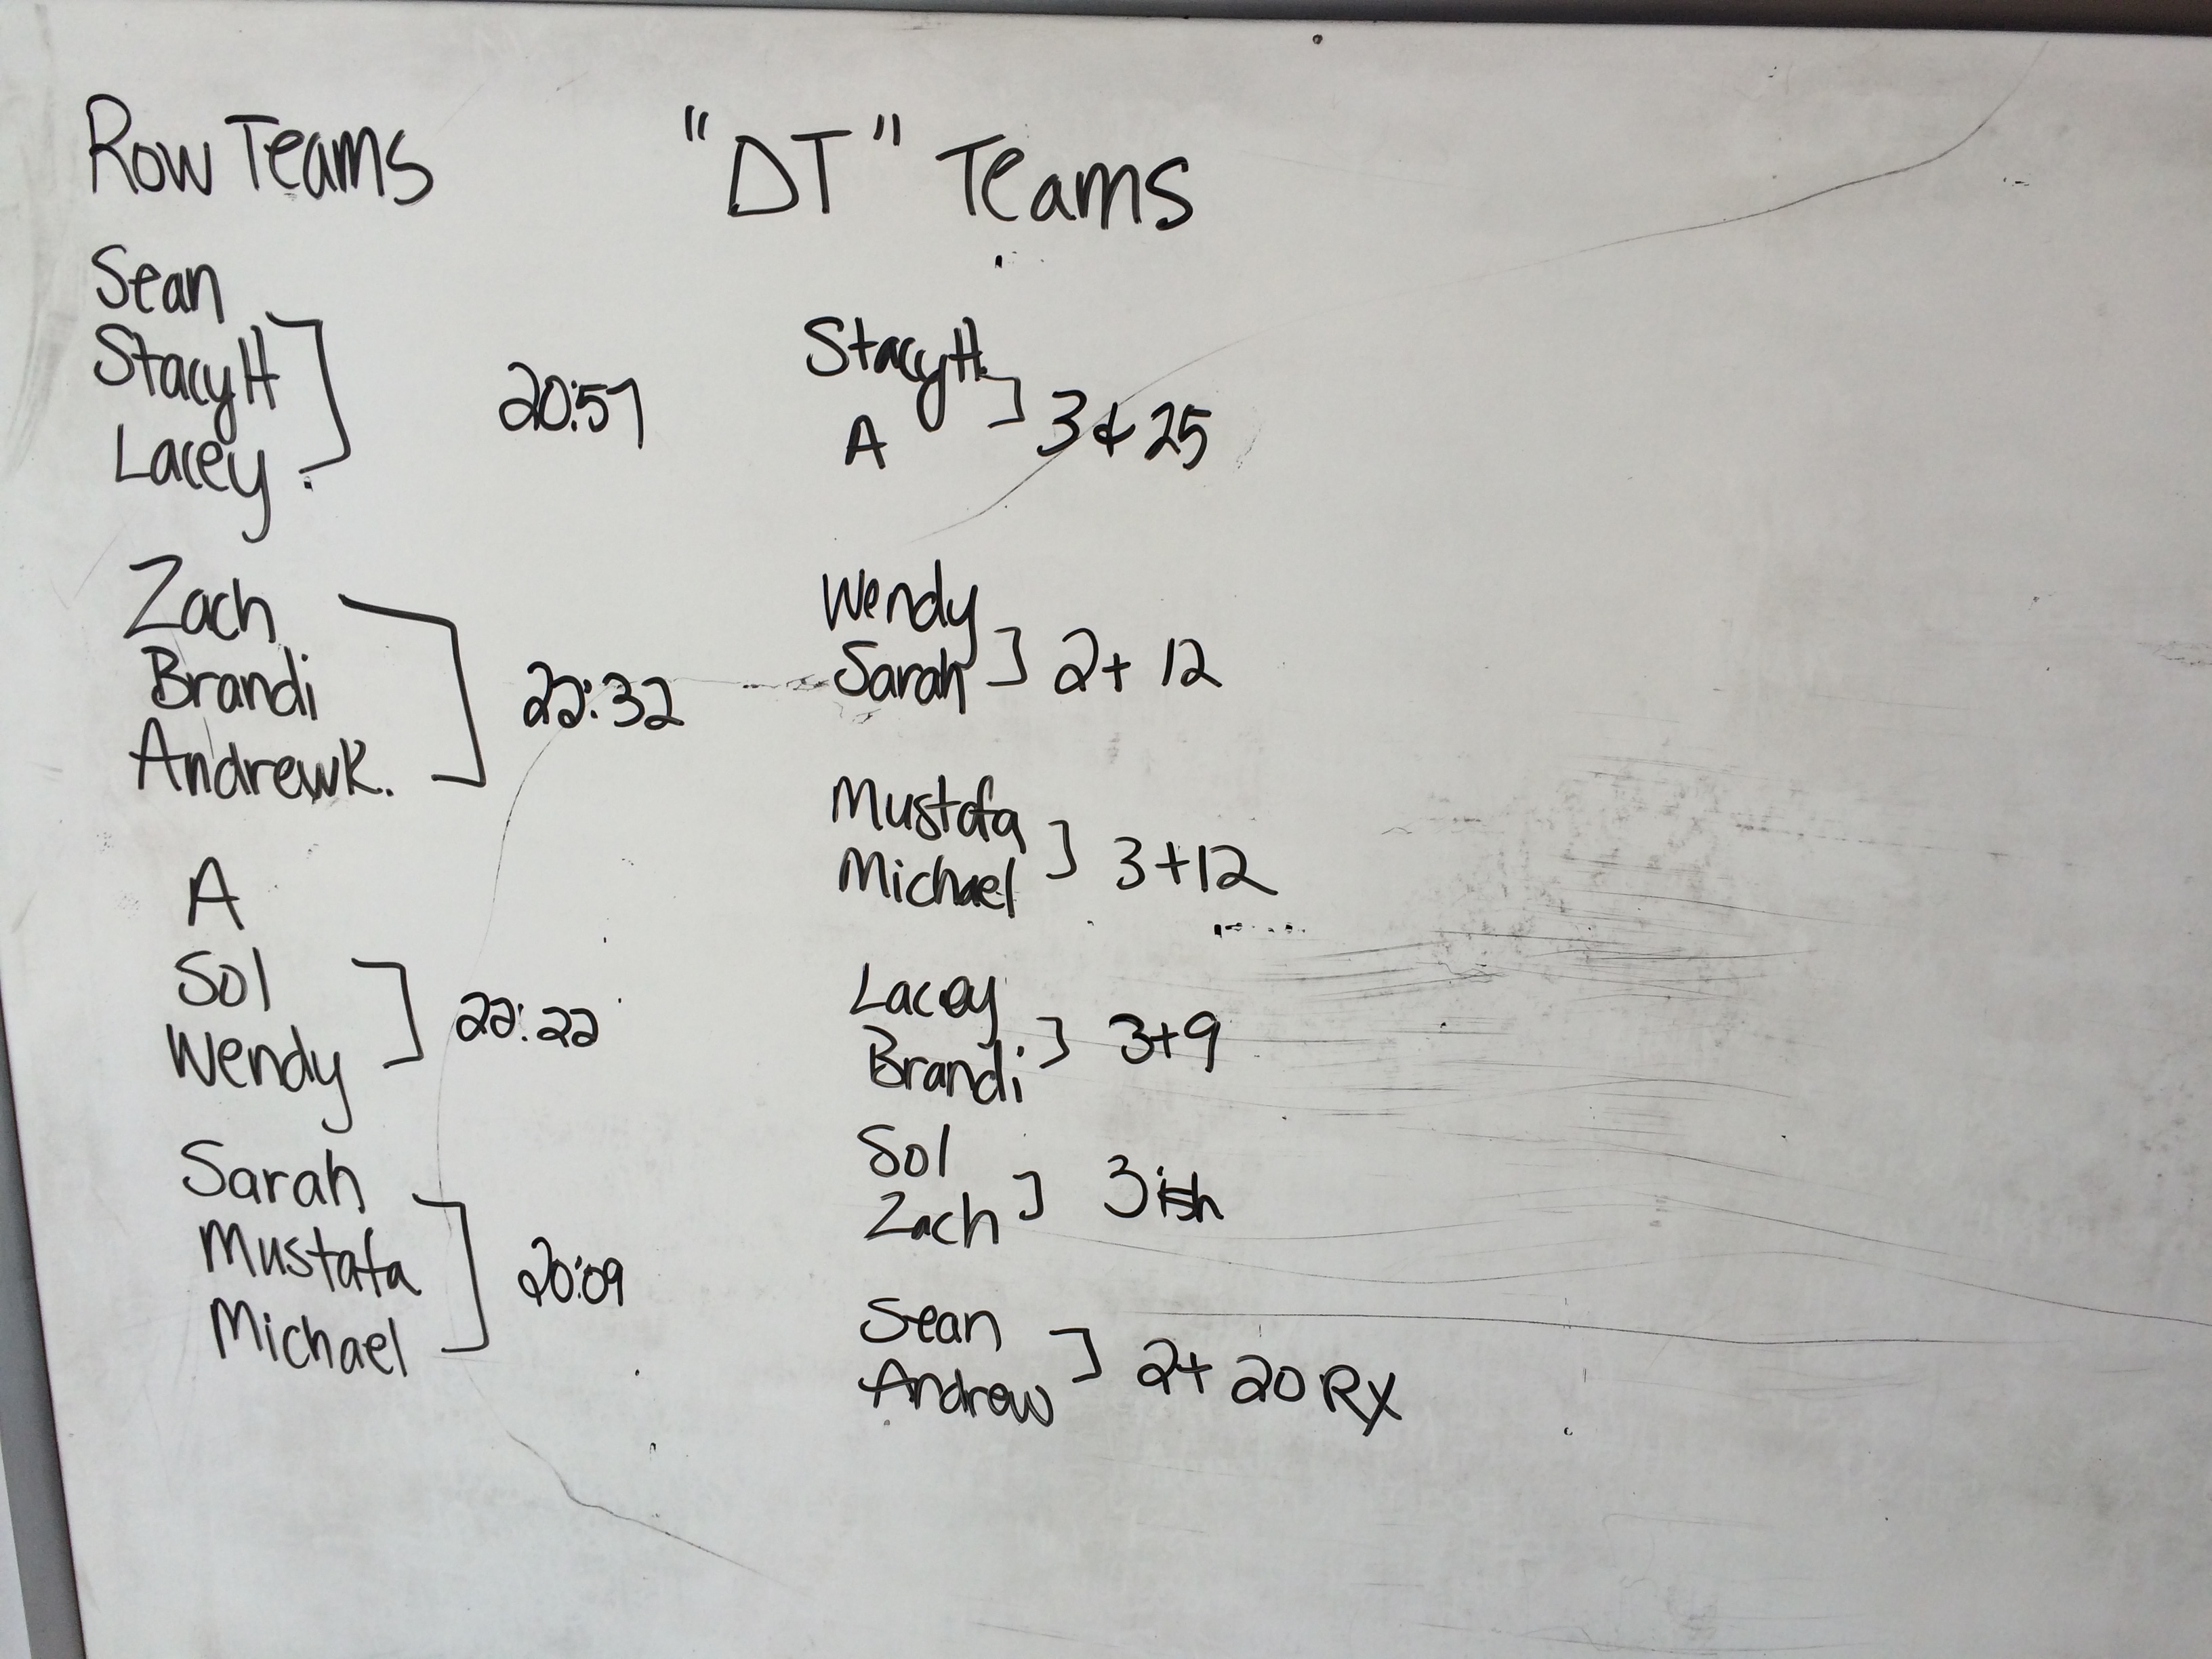 Row Teams
Sean
Stacy H
Lacey
20:57
Zach
Brandi
Andrew K.
22:32
A
Sol
Wendy
22:22
Sarah
Mustafa
Michael
20:09
"DT" Teams
Stacy H.
A
3 & 25
Wendy
Sarah
2+ 12
Mustafa
Michael
3+12
Lacey
Brandi
3+9
Sol
Zach
3ish
Sean
Andrew
2+ 20 RX